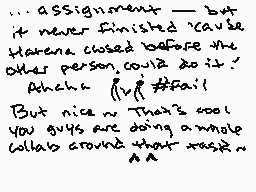 ... assignment — but
it never finished 'cause
Hatena closed before the
other person could do it!
Ahaha #Fail
But nice ~ That's cool
you guys are doing a whole
collab around that task ~
^^